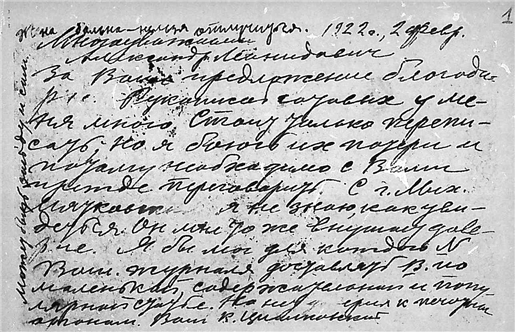 Жена больна - нельзя отлучиться. 1922 г., 2 февр.
1
Многоуважаемый
Александр Леонидович
За Ваше предложение благода-
рю. Рукописей готовых у ме-
ня много. Стоит только перепи-
сать. Но я боюсь их потери и
потому необходимо с Вами
прежде переговорить. С г. Мих.
я не знаю, как уви-
деться. Он мне тоже внушает дове-
рие. Я бы мог для каждого N
Ваш. журнала доставлять В. по
маленькой, содержательной и попу-
лярной статье. Но
Ваш К. Циолковский
Может быть